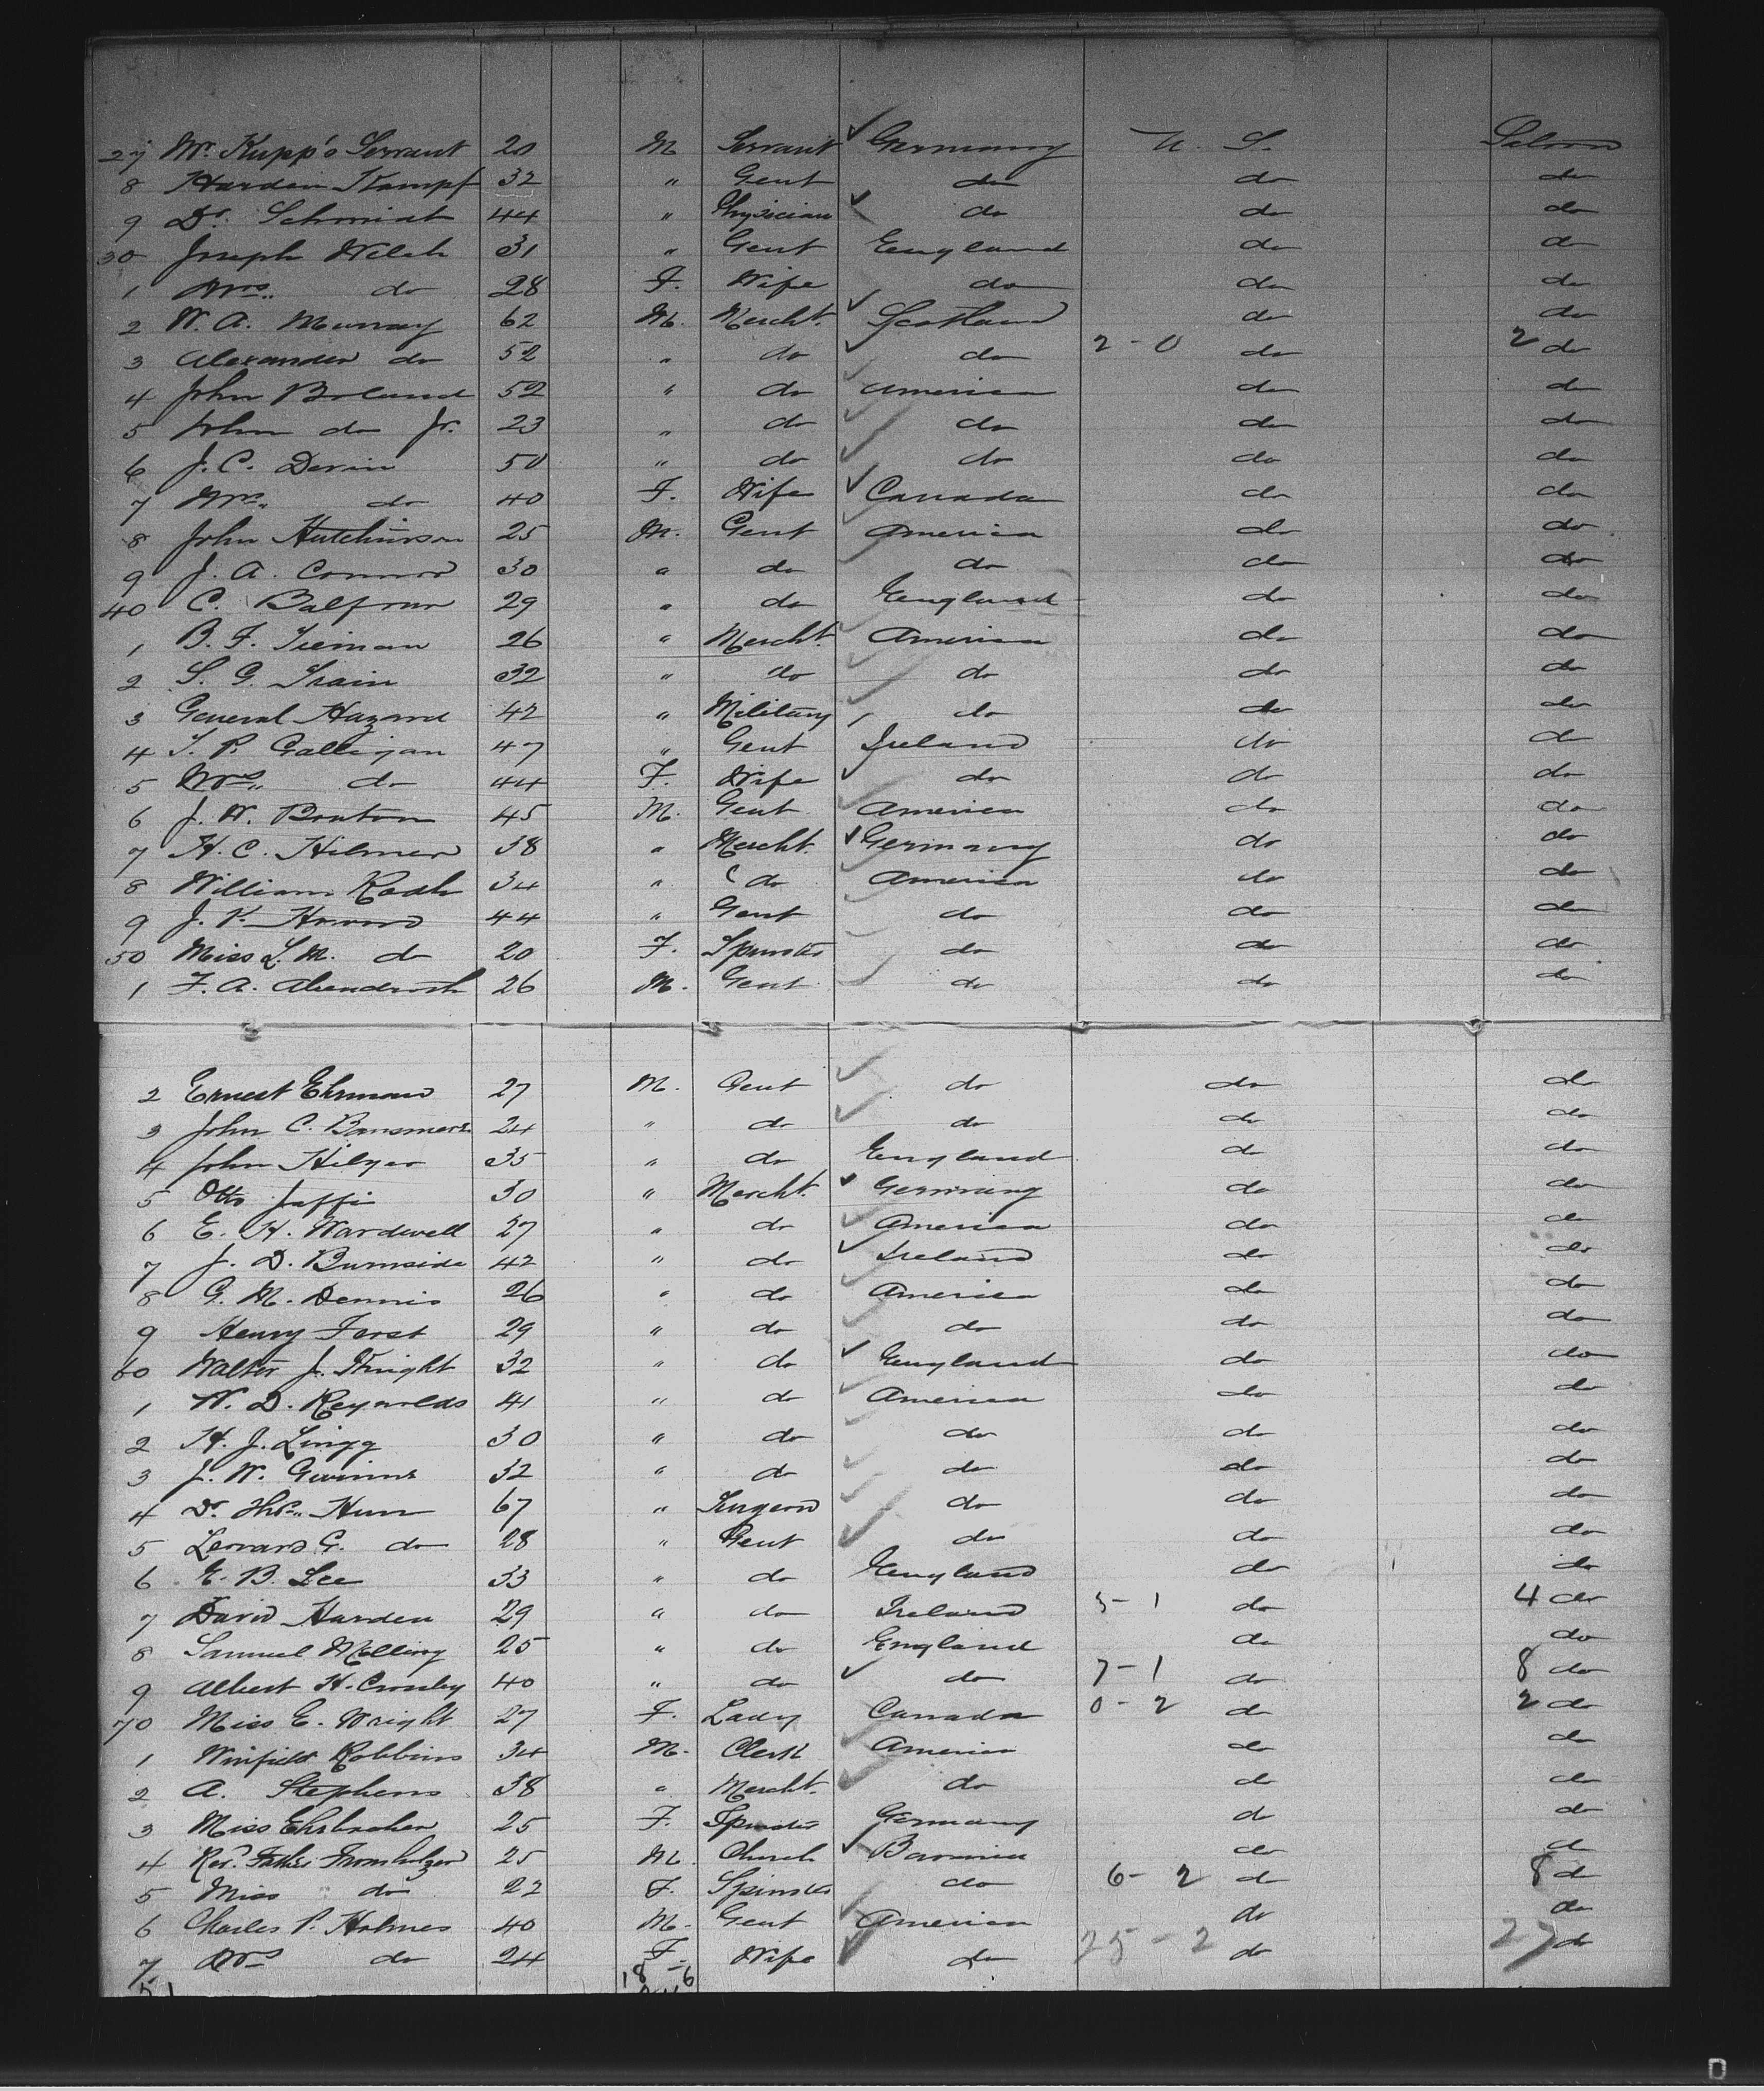 27 Mr. Kupp's Servant 20 M Servant ✓ Germany U. S. Saloon
8 Harden Kampf 32 " Gent do do do
9 Dr. Schmidt 44 " Physician ✓ do do do
30 Joseph Welsh 31 " Gent England do do
1 Mrs. do 28 F. Wife do do do
2 W. A. Murray 62 M. Mercht. ✓ Scotland do do
3 Alexander do 52 " do ✓ do 2-0 do 2 do
4 John Boland 52 " do ✓ America do do
5 John do Jr. 23 " do ✓ do do do
6 J. C. Devin 50 " do ✓ do do do
7 Mrs. do 40 F. Wife ✓ Canada do do
8 John Hutchinson 25 M. Gent ✓ America do do
9 J. A. Connor 30 " do ✓ do do do
40 C. Balfour 29 " do England do do
1 B. F. Tieman 26 " Mercht. ✓ America do do
2 S. G. Train 32 " do ✓ do do do
3 General Hazard 42 " Military ✓ do do do
4 T. P. Galligan 47 " Gent Ireland do do
5 Mrs. do 44 F. Wife ✓ do do do
6 J. W. Bouton 45 M. Gent ✓ America do do
7 H. C. Hilmer 38 " Mercht. ✓ Germany do do
8 William Roth 34 " do ✓ America do do
9 J. P. 44 " Gent ✓ do do do
50 Miss L. M. do 20 F. Spinster ✓ do do do
1 F. A. 26 M. Gent ✓ do do do
2 Ernest Ehrman 27 M. Gent ✓ do do do
3 John C. 24 " do ✓ do do do
4 John Hilyer 35 " do England do do
5 Otto Jaffi 30 " Mercht. ✓ Germany do do
6 E. H. Wardwell 27 " do ✓ America do do
7 J. D. Burnside 42 " do ✓ Ireland do do
8 G. M. Dennis 26 " do ✓ America do do
9 Henry Ferst 29 " do ✓ do do do
60 Walter J. Knight 32 " do ✓ England do do
1 W. D. Reynolds 41 " do ✓ America do do
2 H. J. Lingg 30 " do ✓ do do do
3 J. W. 32 " do ✓ do do do
4 Dr. Thos. Hun 67 " Surgeon ✓ do do do
5 Leonard G. do 28 " Gent ✓ do do do
6 E. B. Lee 33 " do England do do
7 David Harden 29 " do Ireland 3-1 do 4 do
8 Samuel Melling 25 " do England do do
9 Albert H. Crosby 40 " do ✓ do 7-1 do 8 do
70 Miss E. Wright 27 F. Lady Canada 0-2 do 2 do
1 Winfield Robbins 34 M. Clerk ✓ America do do
2 A. Stephens 38 " Mercht. ✓ do do do
3 Miss 25 F. Spinster Germany do do
4 Rev. Father 25 M. Church ✓ Bavaria do do
5 Miss do 22 F. Spinster do 6-2 do 8 do
6 Charles P. Holmes 40 M. Gent ✓ America do do
7 Mrs do 24 F. Wife ✓ do 25-2 do 27 do
51 18-6
D